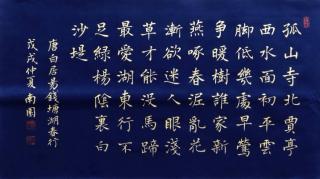 孤山寺北賈亭
西水面初平雲
脚低幾處早鶯
争暖樹誰家新
燕啄春泥亂花
漸欲迷人眼淺
草才能没馬蹄
最愛湖東行不
足緑楊陰裏白
沙堤
唐白居易錢塘湖春行
戊戌仲夏南園